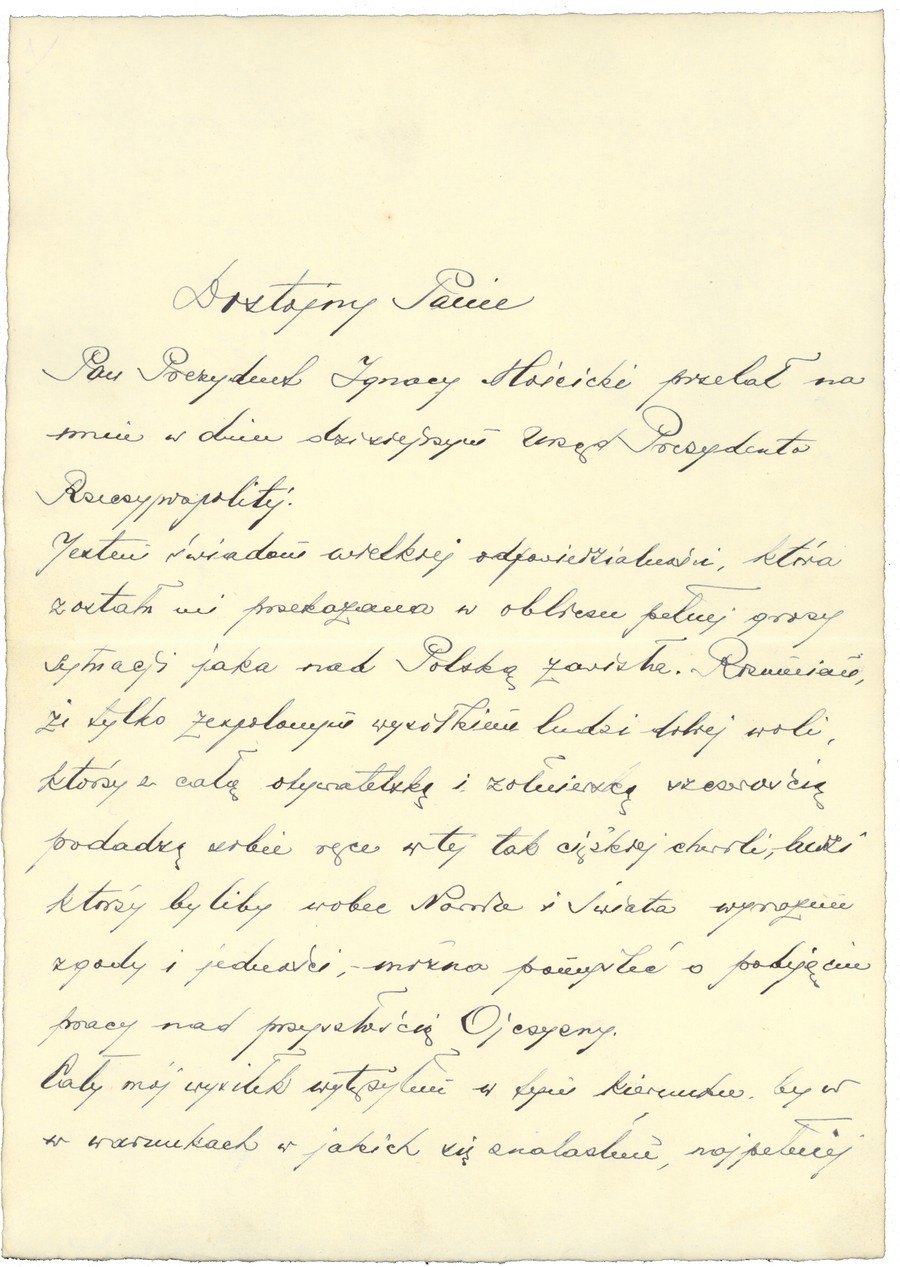 Dostojny Panie
Pan Prezydent Ignacy Mościcki przelał na
mnie w dniu dzisiejszym Urząd Prezydenta
Rzeczypospolitej.
Jestem świadom wielkiej odpowiedzialności, która
została mi przekazana w obliczu pełnej grozy
sytuacji jaka nad Polską zawisła. Rozumiem,
że tylko zespolonym wysiłkiem ludzi dobrej woli,
którzy z całą obywatelską i żołnierską szczerością
podadzą sobie ręce w tej tak ciężkiej chwili, - ludzi
którzy byliby wobec Narodu i Świata wyrazem
zgody i jedności, - można pomyśleć o podjęciu
pracy nad przyszłością Ojczyzny.
Cały mój wysiłek wytężyłem w tym kierunku by w
w warunkach w jakich się znalazłem, najpełniej